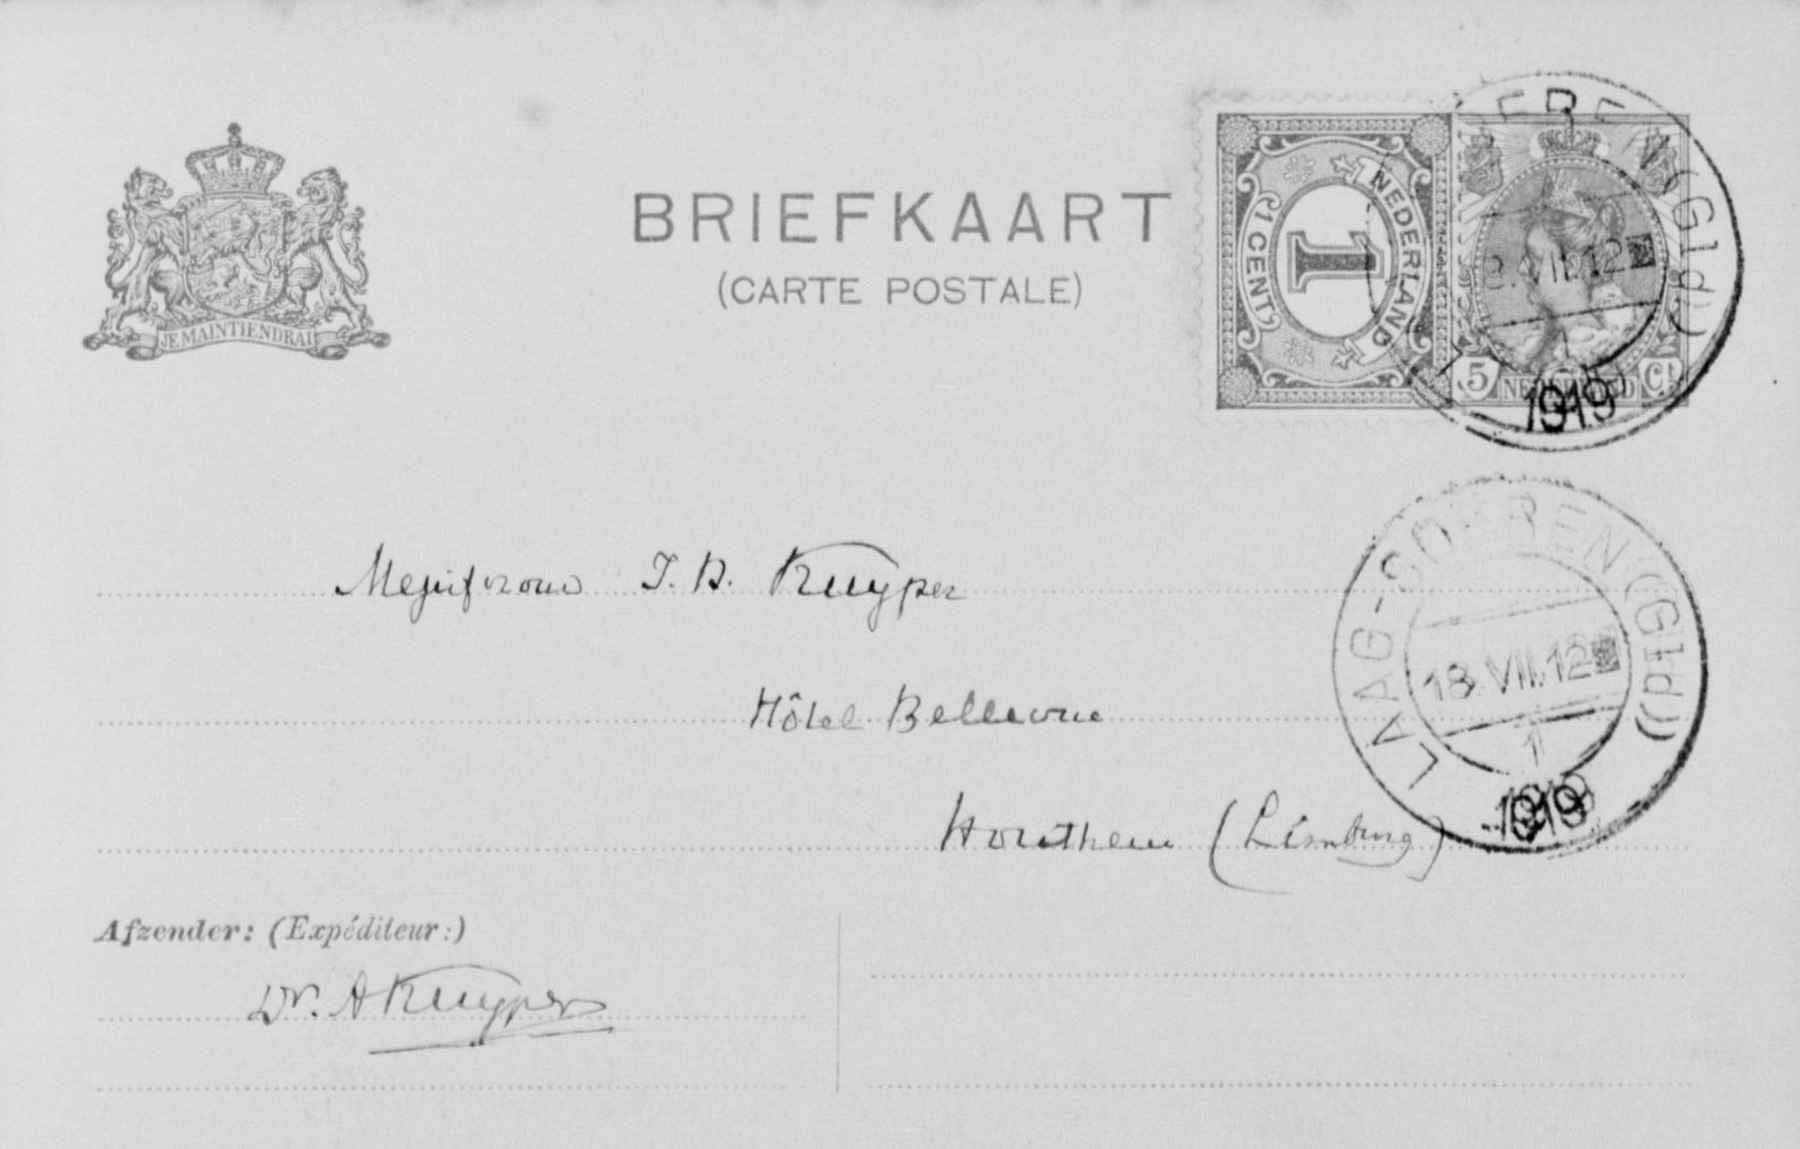 BRIEFKAART
(CARTE POSTALE)
JE MAINTIENDRAI
NEDERLAND
1 CENT
1
5 NEDERLAND Ct
1919
LAAG-SOEREN (Gld)
18.VII.12
1
1919
Mejufvrouw J. H. Kuyper
Hôtel Bellevue
Houthem (Limburg)
Afzender: (Expéditeur:)
Dr. A Kuyper